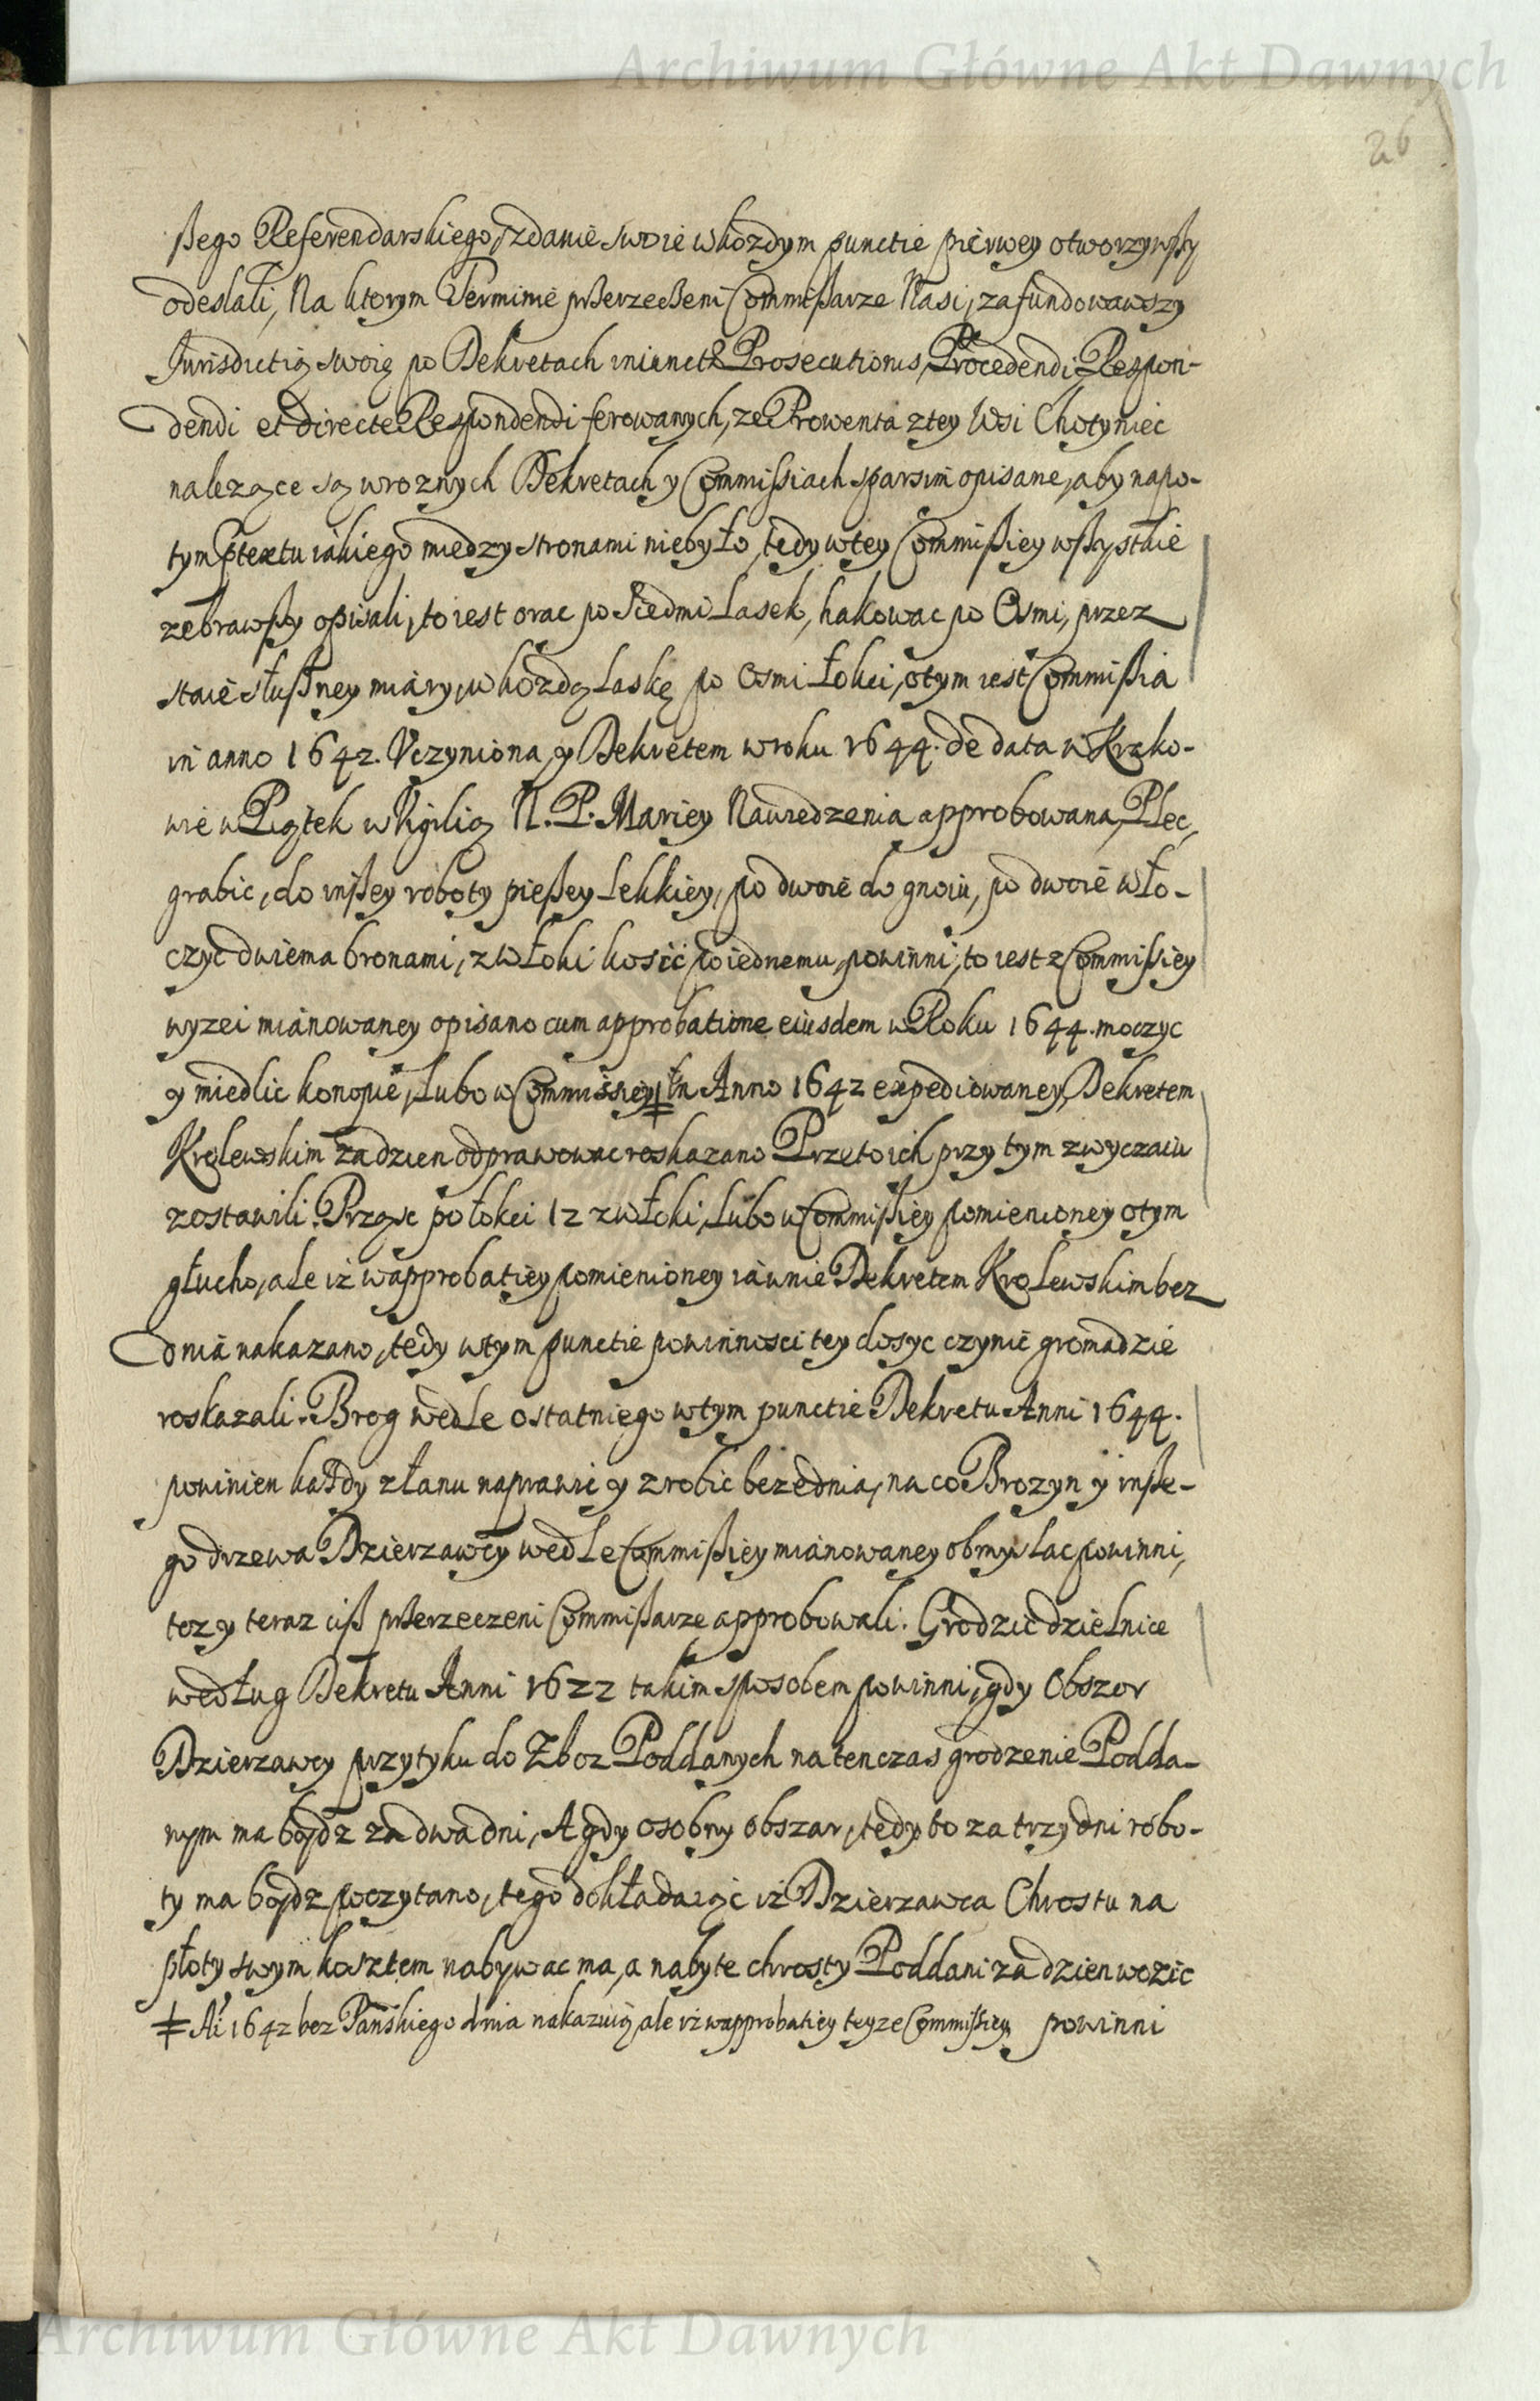 Archiwum Główne Akt Dawnych
26
ßego Referendarskiego, zdanie swoie w kozdym punctie pierwey otworzywßy
odeslali, Na ktorym Terminie przerzeczeni Commißarze Nasi, zafundowawszy
Jurisdictią swoię po Dekretach iniunctæ Prosecutionis, Procedendi, Respon-
dendi et directe Respondendi ferowanych, ze Prowenta z tey Wsi Chotyniec
nalezące są w roznych Dekretach y Commißiach sparsim opisane, aby napo-
tym ptextu iakiego miedzy stronami niebyło, tedy w tey Commißiey wßystkie
zebrawßy opisali, to iest orac po siedmi Lasek, hakowac po Osmi, przez
staie słußney miary, w kozdą Laskę po Osmi Łokci, o tym iest Commißia
in anno 1642. Vczyniona, y Dekretem w roku 1644. de data w Krako-
wie w Piątek w Vigilią N. P. Mariey Nawiedzenia approbowana, Plec,
grabic, do inßey roboty pießey Lekkiey, po dwoie do gnoiu, po dwoie wło-
czyc dwiema bronami, z włoki kosić po iednemu, powinni, to iest z Commißiey
wyzei mianowaney opisano cum approbatione eiusdem w Roku 1644. moczyc
y miedlic konopie, Lubo w Commissiey ‡ In Anno 1642 expediowaney, Dekretem
Krolewskim za dzien odprawowac roskazano Przeto ich przy tym zwyczaiu
zostawili. Prząsc po łokci 12 z włoki, Lubo w Commißiey pomienioney o tym
głucho, ale iż w approbatiey pomienioney iawnie Dekretem Krolewskim bez
dnia nakazano, tedy w tym punctie powinnosci tey dosyc czynić gromadzie
roskazali. Brog wedle ostatniego w tym punctie Dekretu Anni 1644.
powinien każdy z łanu naprawić y zrobic bezednia, na co Brozyn y inße-
go drzewa Dzierzawcy wedle Commißiey mianowaney obmyslac powinni,
toz y teraz ciß przerzeczeni Commißarze approbowali. Grodzić dzielnice
według Dekretu Anni 1622 takim sposobem powinni, gdy Obszor
Dzierzawcy przytyku do Zboz Poddanych na ten czas grodzenie Podda-
nym ma bydz za dwa dni, A gdy osobny obszar, tedy to za trzy dni robo-
ty ma bydz poczytano, tego dokładaiąc iż Dzierzawca Chrostu na
płoty swym kosztem nabywac ma, a nabyte chrosty Poddani za dzien wozic
‡ Ai 1642 bez Pańskiego dnia nakazuią, ale iż w approbatiey teyze Commißiey powinni
Archiwum Główne Akt Dawnych